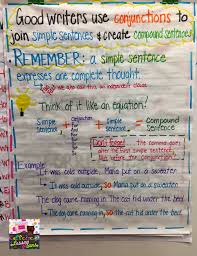 Good Writers use conjunctions to
join simple sentences & create compound sentences
REMEMBER: a simple sentence
expresses one complete thought.
we also call this an independent clause
Think of it like an equation!
Conjunction
Simple Sentence + + Simple Sentence = Compound Sentence
Don't forget! the comma goes
after the first simple sentence,
but before the conjunction.
Example
It was cold outside. Mama put on a sweater.
It was cold outside, so Mama put on a sweater
The dog came running in. The cat hid under the bed.
The dog came running in, so the cat hid under the bed.